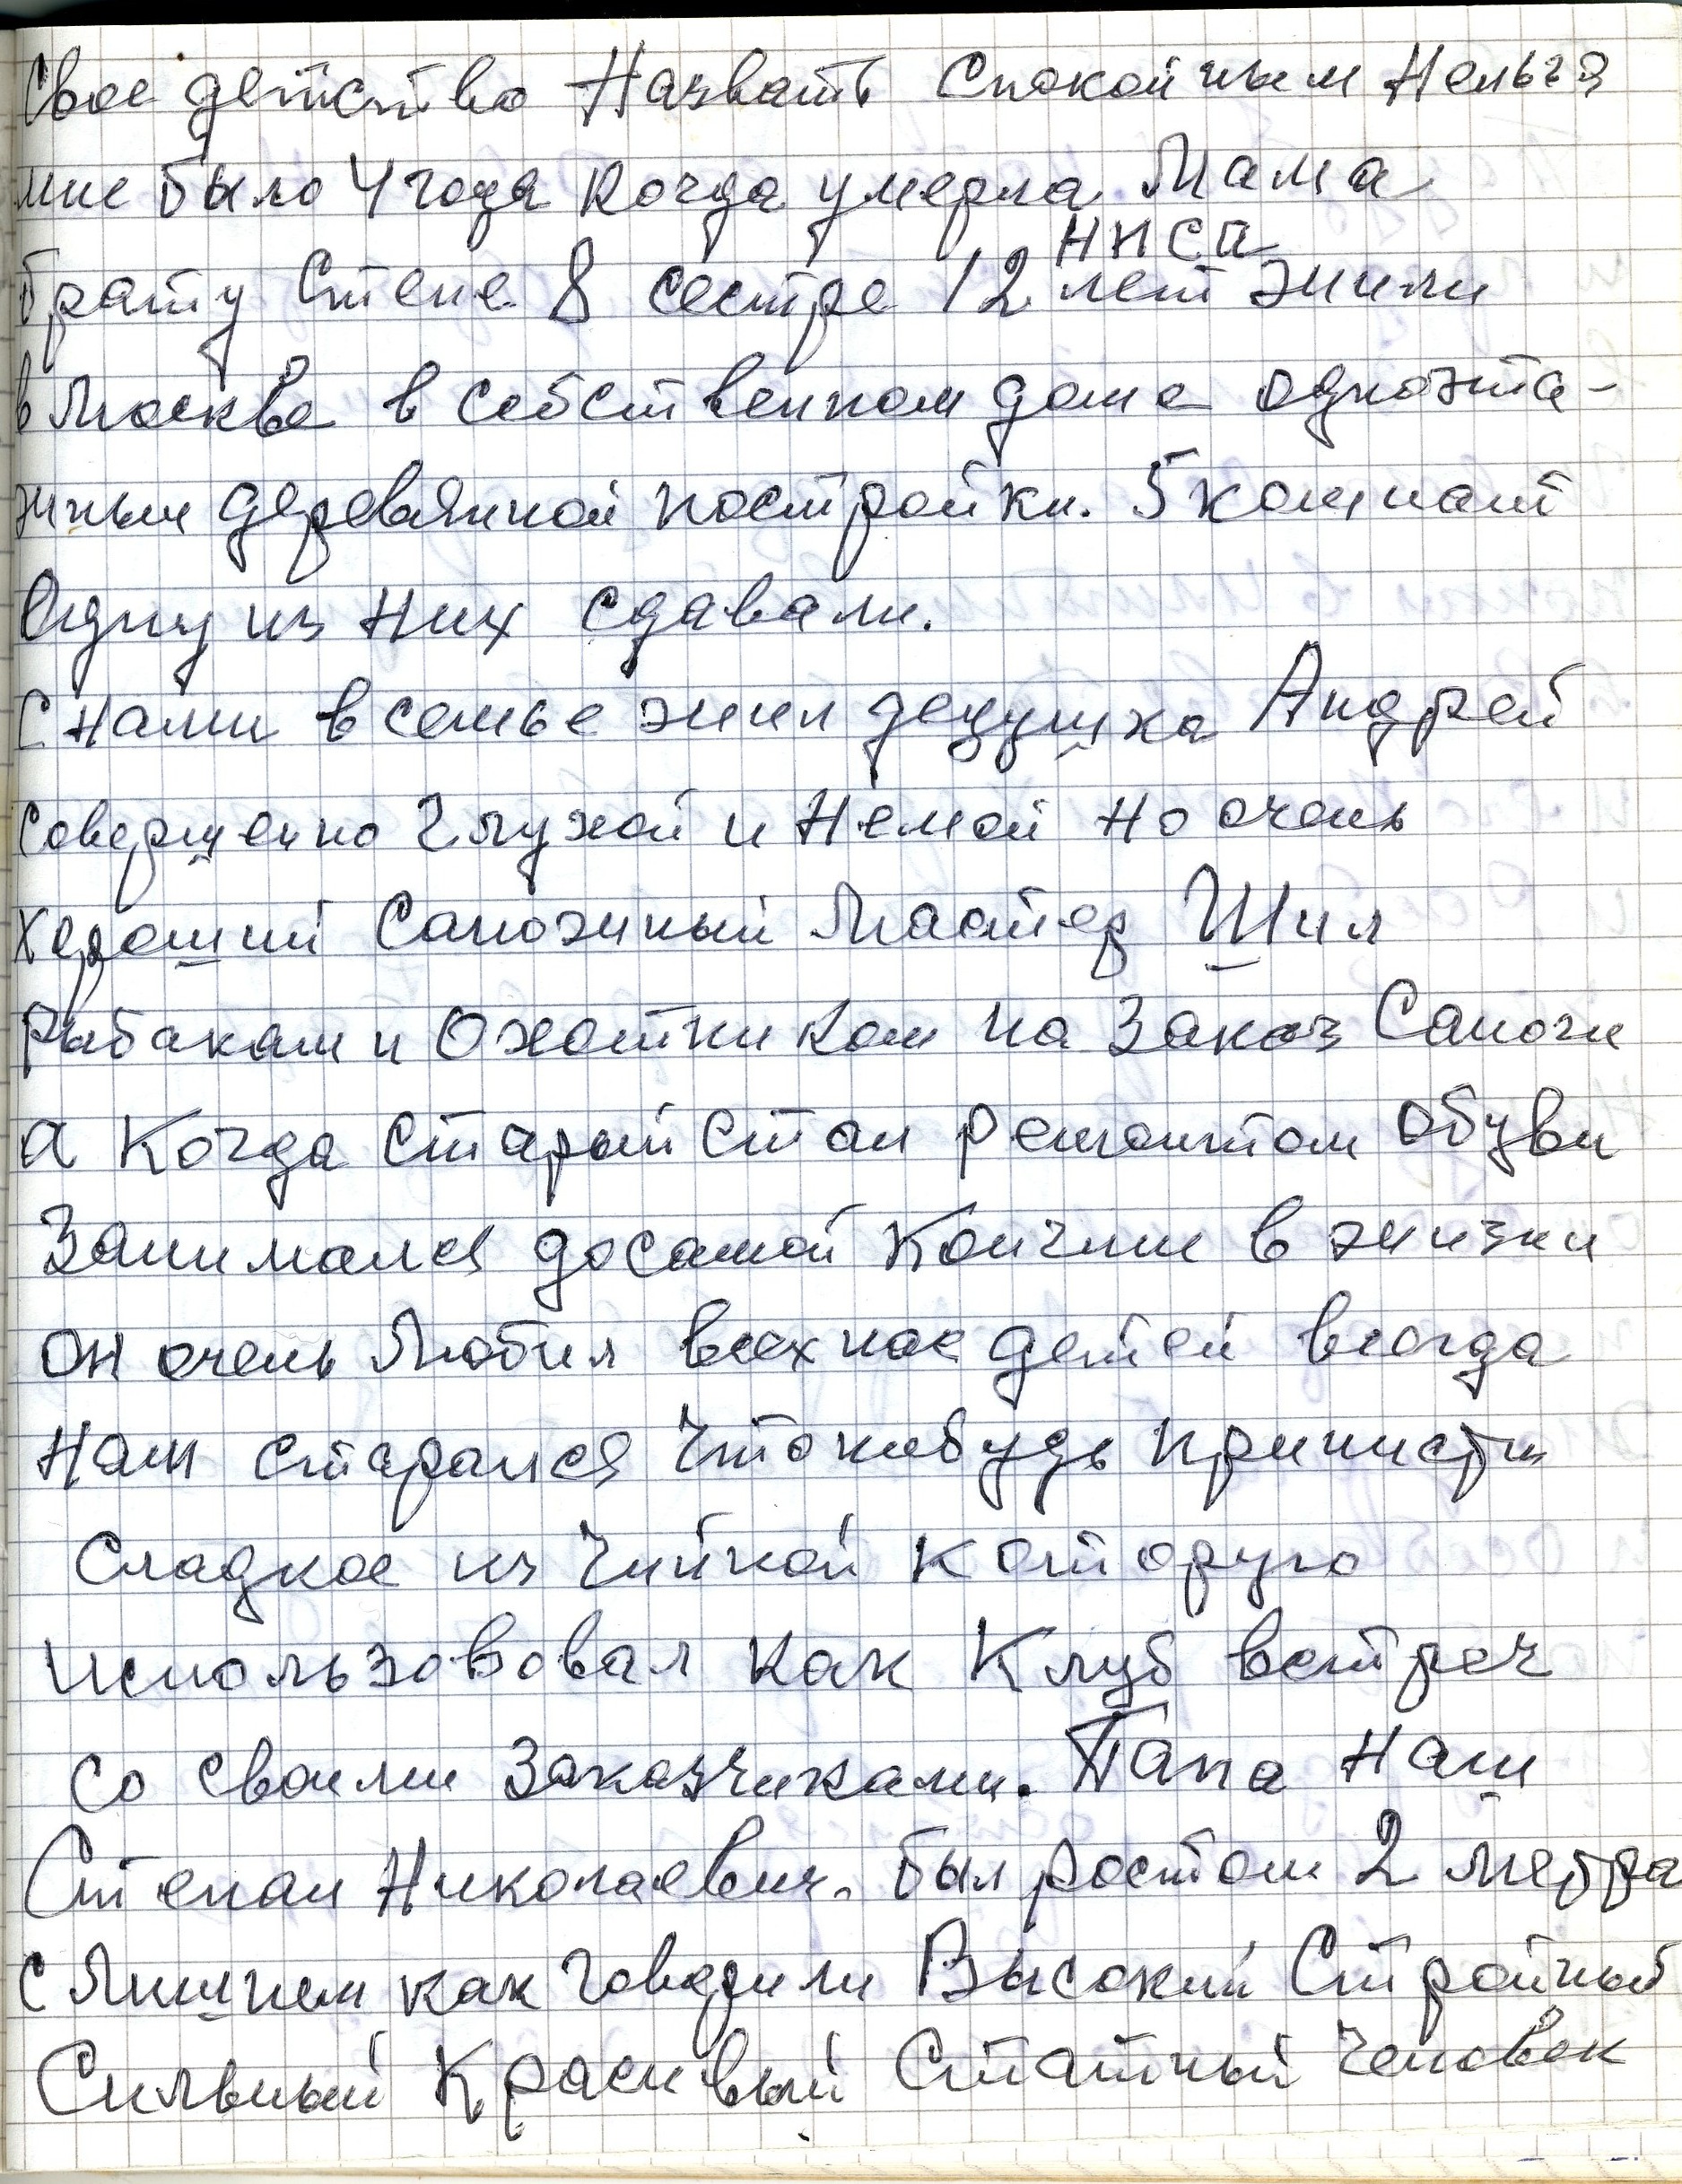 Свое детство Назвать Спокойным Нельзя
мне было 4 года когда умерла Мама
ниса
брату Степе 8 сестре 12 лет жили
в Москве в собственном доме одноэта-
жным деревянной постройки. 5 комнат
Одну из них сдавали.
С нами в семье жил дедушка Андрей
Совершенно глухой и Немой но очень
Хороший Сапожный Мастер Шил
Рыбакам и Охотникам на Заказ Сапоги
а Когда старый стал ремонтом обуви
Занимался до самой Кончины в жизни
он очень Любил всех нас детей всегда
Нам старался что нибудь принисти
Сладкое из Чийной которую
использововал как Клуб встреч
со своими Заказчиками. Папа Наш
Степан Николаевич. был ростом 2 метра
с Лишнем как говорили Высокий Стройный
Сильный Красивый Статный Человек